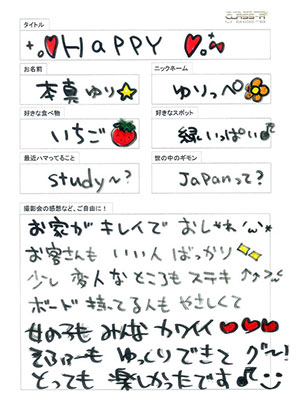 タイトル
CLASS-A
HAPPY
お名前
ニックネーム
本真ゆり
ゆりっぺ
好きな食べ物
好きなスポット
いちご
緑いっぱい
最近ハマってること
世の中のギモン
study〜?
Japanって?
撮影会の感想など、ご自由に!
お家がキレイでおしゃれ'ω'*
お客さんもいい人ばっかり
少し変人なところもステキ↑↑
ボード持ってる人もやさしくて
女の子もみんなカワイイ
もゆっくりできてグ〜!
とっても楽しかったです♪